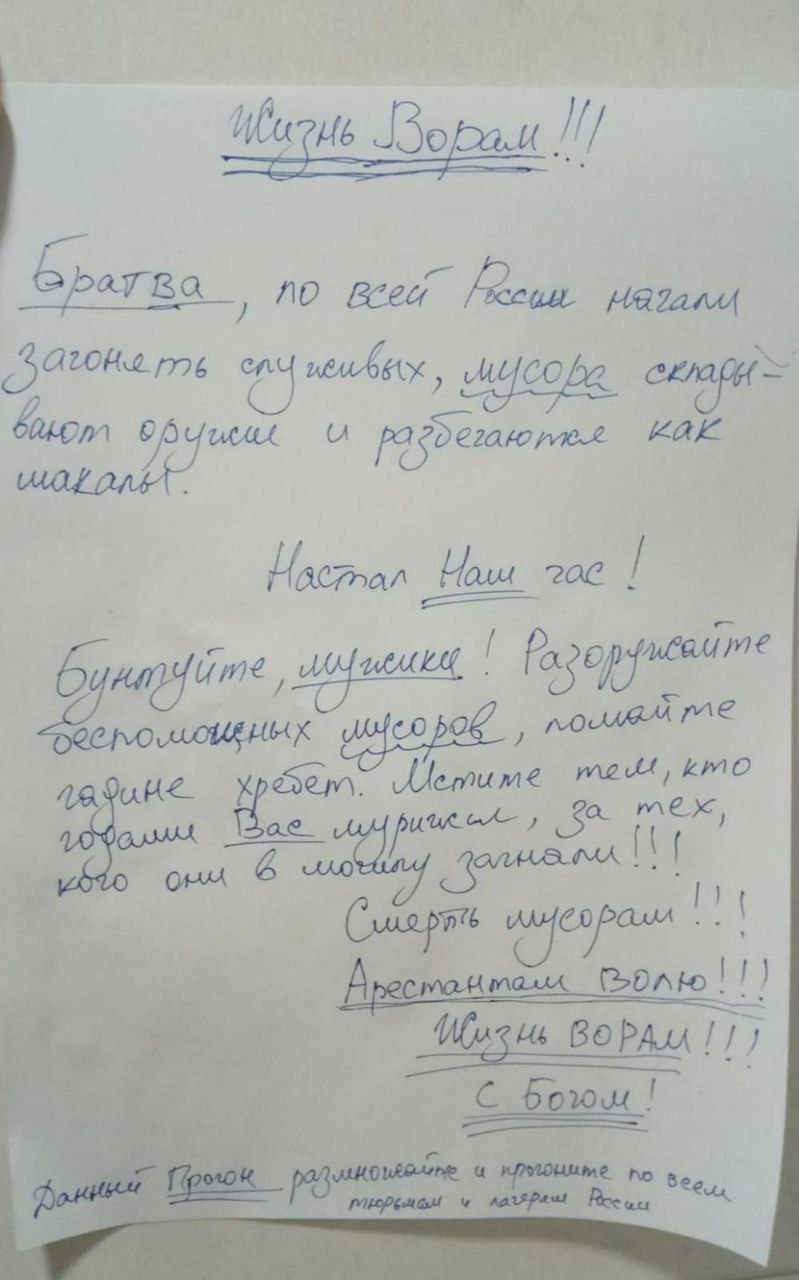 Жизнь Ворам!!!
Братва, по всей России начали
загонять служивых, мусора склады-
вают оружие и разбегаются как
шакалы.
Настал Наш час!
Бунтуйте, мужики! Разоружайте
беспомощных мусоров, ломайте
гадине хребет. Мстите тем, кто
годами Вас мурыжил, за тех,
кого они в могилу загнали!!!
Смерть мусорам!!!
Арестантам волю!!!
Жизнь ВОРАМ!!!
С Богом!
Данный Прогон размножайте и прогоните по всем
тюрьмам и лагерям России